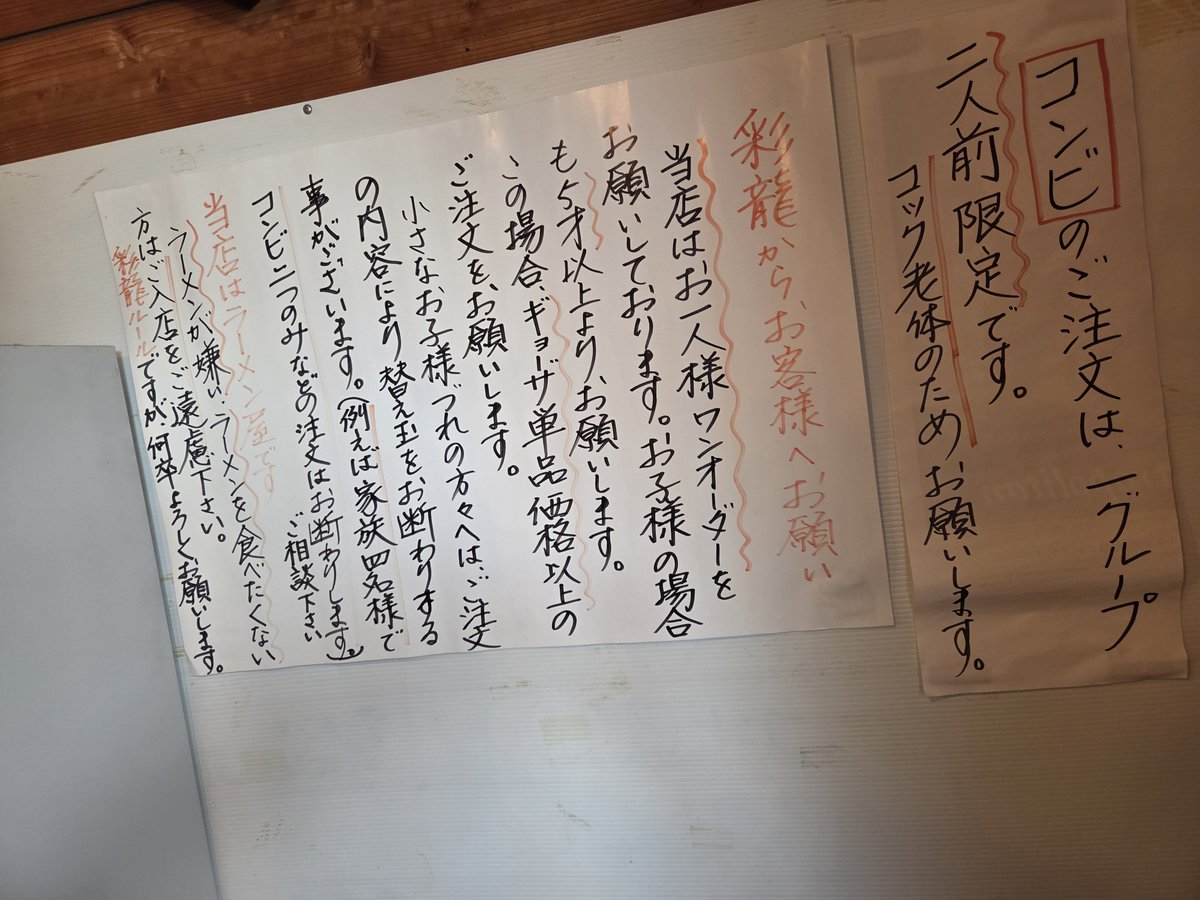 コンビのご注文は、一グループ
二人前限定です。
コック老体のためお願いします。
彩龍から、お客様へ、お願い
当店はお一人様ワンオーダーを
お願いしております。お子様の場合
も5才以上より、お願いします。
この場合、ギョーザ単品価格以上の
ご注文を、お願いします。
小さなお子様づれの方々へは、ご注文
の内容により替え玉をお断わりする
事がございます。(例えば家族四名様で
コンビ二つのみなどの注文はお断わりします)。
ご相談下さい
当店はラーメン屋です
ラーメンが嫌い、ラーメンを食べたくない
方はご入店をご遠慮下さい。
彩龍ルールですが、何卒よろしくお願いします。